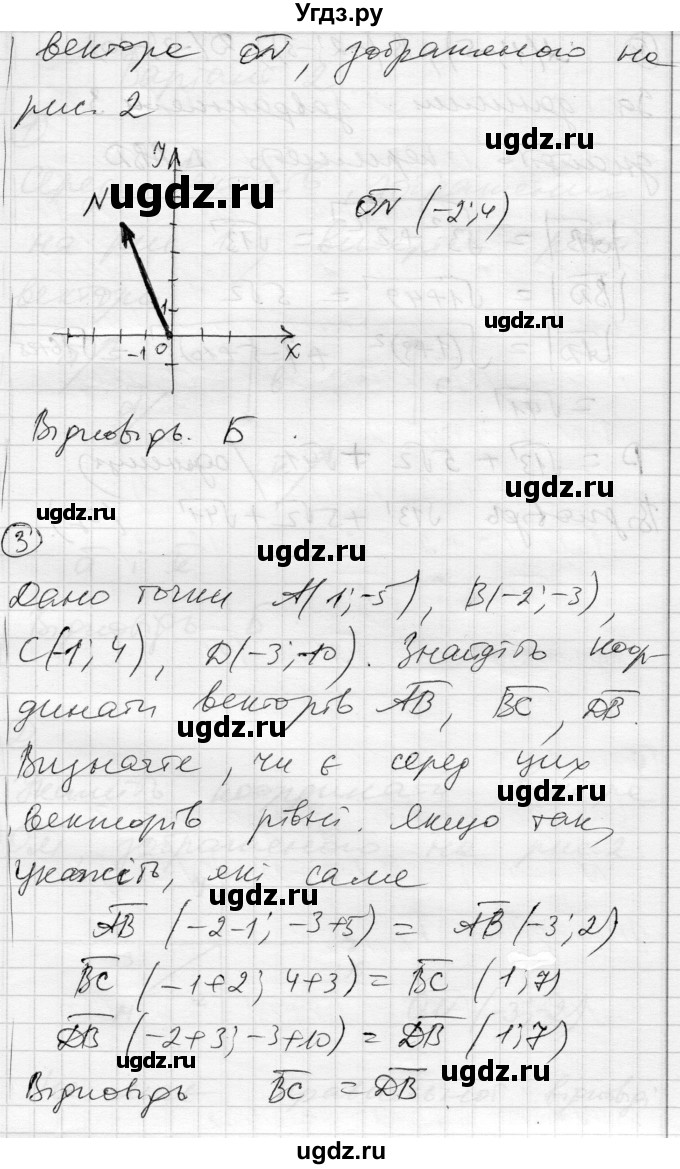 Угдз.ру
вектора ON, зображеного на
рис. 2
ugdz.ru
y
N
ugdz.ru
ON (-2; 4)
ugdz.ru
1
-1 0 x
Відповідь. Б
ugdz.ru
ugdz.ru
3
Дано точки A(1; -5), B(-2; -3),
C(-1; 4), D(-3; -10). Знайдіть коор-
ugdz.ru
динати векторів AB, BC, DB.
ugdz.ru
Визначте, чи є серед цих
векторів рівні. Якщо так,
ugdz.ru
укажіть, які саме
ugdz.ru
AB (-2-1; -3+5) = AB (-3; 2)
BC (-1+2; 4+3) = BC (1; 7)
DB (-2+3; -3+10) = DB (1; 7)
ugdz.ru
ugdz.ru
Відповідь BC = DB.
ugdz.ru